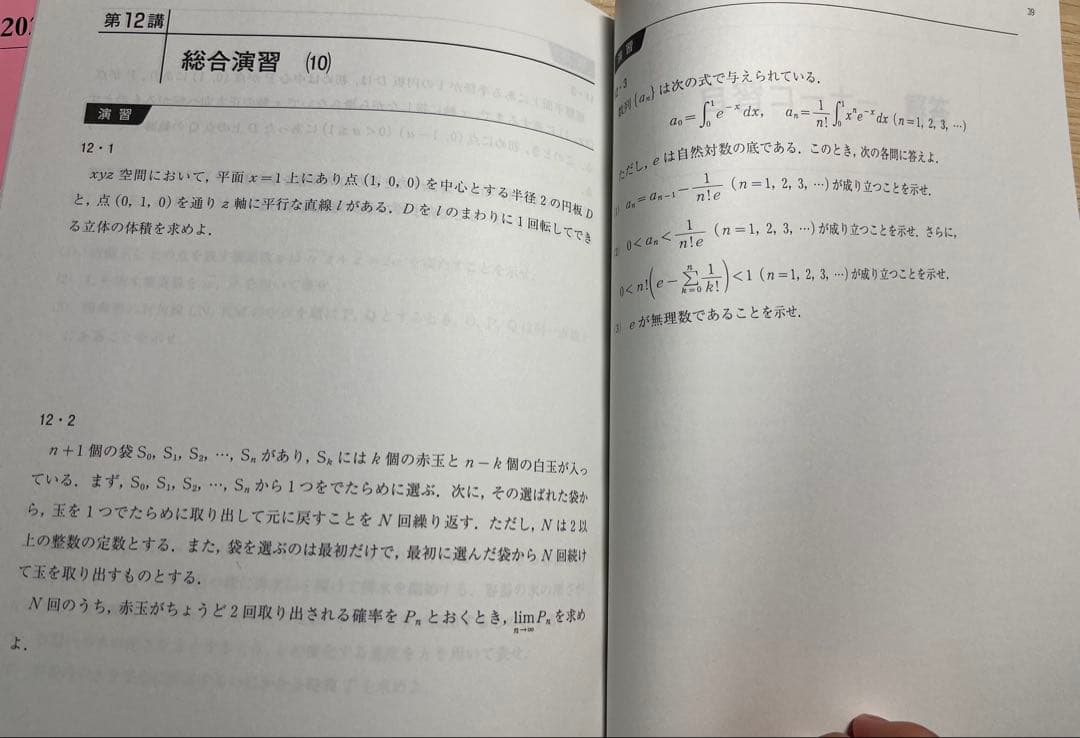 202
第12講
総合演習 (10)
演習
12・1
xyz 空間において, 平面 x=1 上にあり点 (1, 0, 0) を中心とする半径 2 の円板 D
と, 点 (0, 1, 0) を通り z 軸に平行な直線 l がある. D を l のまわりに 1 回転してでき
る立体の体積を求めよ.
12・2
n+1 個の袋 S₀, S₁, S₂, …, Sₙ があり, Sₖ には k 個の赤玉と n−k 個の白玉が入っ
ている. まず, S₀, S₁, S₂, …, Sₙ から 1 つをでたらめに選ぶ. 次に, その選ばれた袋か
ら, 玉を 1 つでたらめに取り出して元に戻すことを N 回繰り返す. ただし, N は 2 以
上の整数の定数とする. また, 袋を選ぶのは最初だけで, 最初に選んだ袋から N 回続け
て玉を取り出すものとする.
N 回のうち, 赤玉がちょうど 2 回取り出される確率を Pₙ とおくとき, lim_{n→∞} Pₙ を求め
よ.
39
演習
2・3
数列 {aₙ} は次の式で与えられている.
a₀=∫₀¹ e^{-x}dx, aₙ=1/n! ∫₀¹ xⁿe^{-x}dx (n=1, 2, 3, …)
ただし, e は自然対数の底である. このとき, 次の各問に答えよ.
(1) aₙ=aₙ₋₁−1/(n!e) (n=1, 2, 3, …) が成り立つことを示せ.
(2) 0<aₙ<1/(n!e) (n=1, 2, 3, …) が成り立つことを示せ. さらに,
0<n!(e−∑_{k=0}^{n} 1/k!)<1 (n=1, 2, 3, …) が成り立つことを示せ.
3) e が無理数であることを示せ.